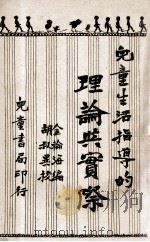 兒童生活指導的
理論與實際
金翰海編
胡叔異校
兒童書局印行